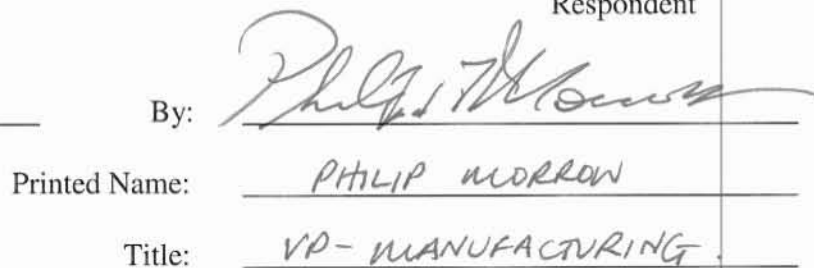 Respondent
By: Philip Morrow
Printed Name: PHILIP MORROW
Title: VP - MANUFACTURING.